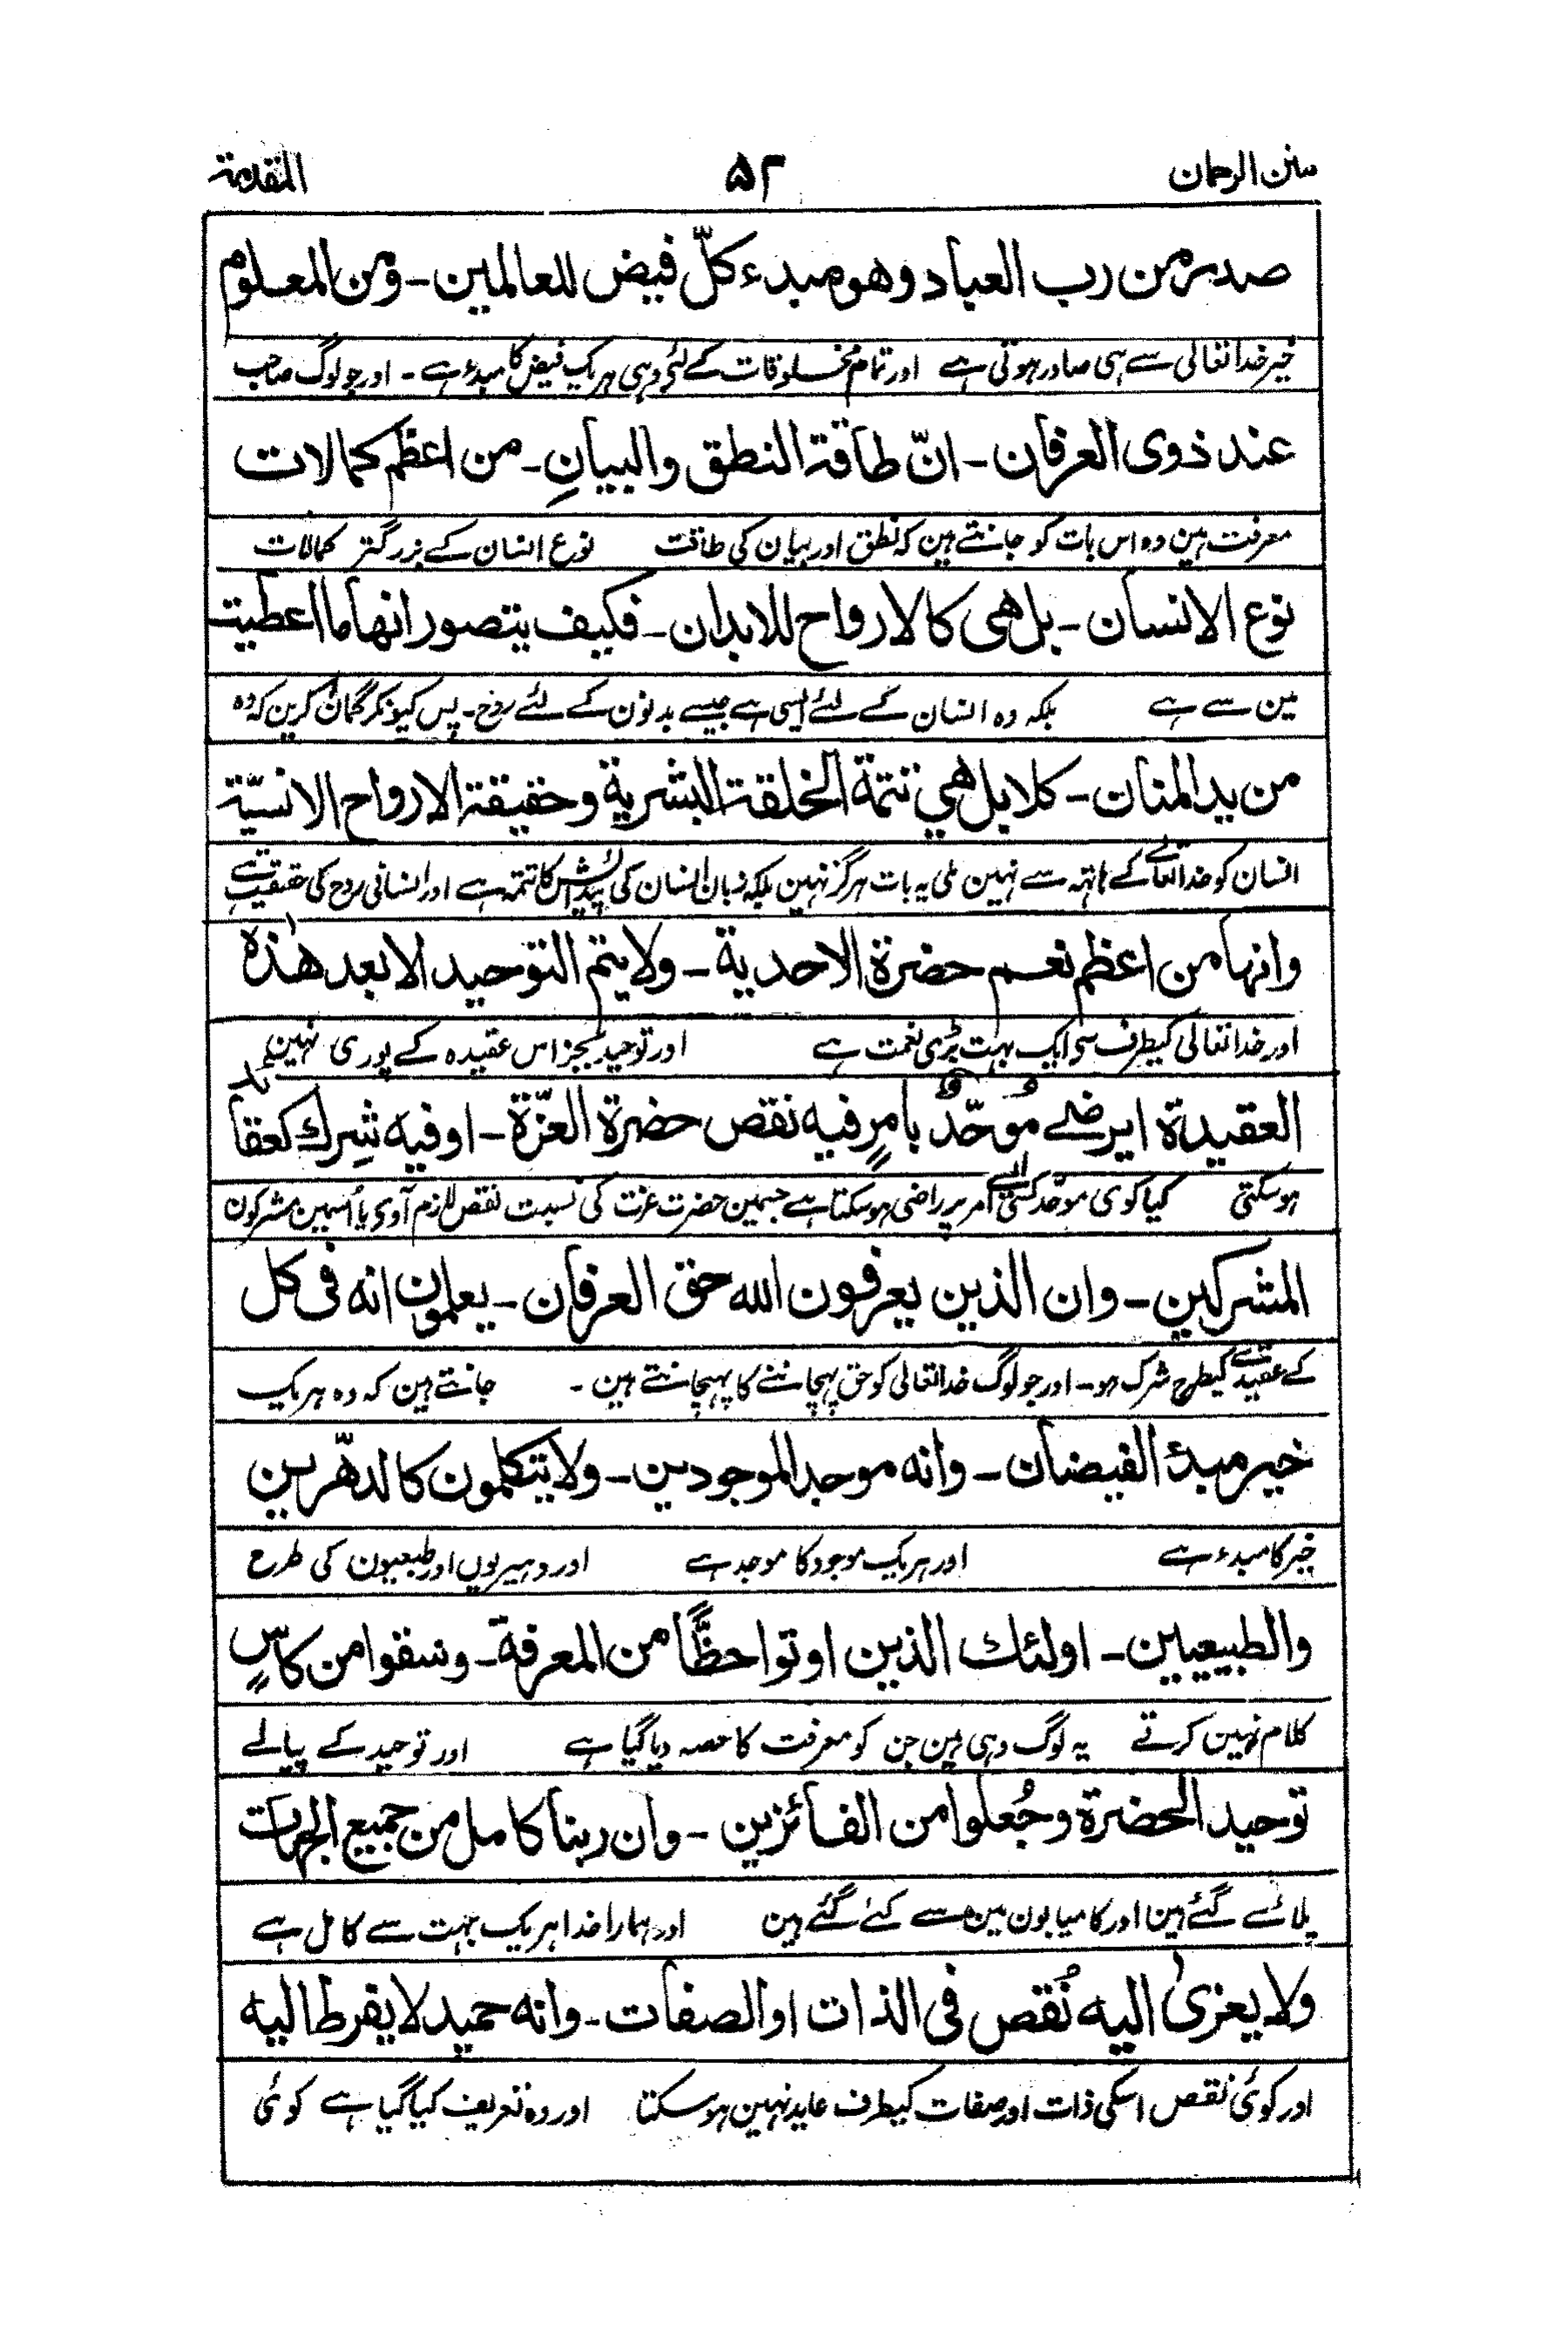 منن الرحمان ۵۲ المقدمة
صدر من رب العباد وهو مبدء كلّ فيض للعالمين ـ ومن المعلوم
خیر خدا تعالیٰ سے ہی صادر ہوتی ہے اور تمام مخلوقات کے لئے وہی ہر یک فیض کا مبدء ہے ـ اور جو لوگ صاحب
عند ذوى العرفان ـ انّ طاقة النطق والبيانِ ـ من اعظم كمالات
معرفت ہین وہ اس بات کو جانتے ہین کہ نطق اور بیان کی طاقت نوع انسان کے بزرگتر کمالات
نوع الانسان ـ بل هى كالارواح للابدان ـ فكيف يتصور انها ما اعطيت
مین سے ہے بلکہ وہ انسان کے لئے ایسی ہے جیسے بدنون کے لئے روح ـ پس کیونکر گمان کرین کہ وہ
من يد المنان ـ كلا بل هي تتمة الخلقة البشرية وحقيقة الارواح الانسيّة
انسان کو خدا تعالےٰ کے ہاتھ سے نہین ملی یہ بات ہرگز نہین بلکہ زبان انسان کی پیدائش کا تتمہ ہے اور انسانی روح کی حقیقت ہے
وانها من اعظم نعم حضرة الاحدية ـ ولا يتم التوحيد الا بعد هٰذه
اور خدا تعالیٰ کیطرف سے ایک بہت بڑی نعمت ہے اور توحید بجز اس عقیدہ کے پوری نہین
العقيدة ايرضى موحّدٌ بامرٍ فيه نقص حضرة العزّة ـ او فيه شِرك كعقائد
ہو سکتی کیا کوی موحّد کسی ایسے امر پر راضی ہو سکتا ہے جسمین حضرت عزت کی نسبت نقص لازم آوی یا اُسمین مشرکون
المشركين ـ وان الذين يعرفون الله حق العرفان ـ يعلمون انه فى كل
کے عقیدے کیطرح شرک ہو ـ اور جو لوگ خدا تعالیٰ کو حق پہچاننے کا پہچانتے ہین ـ جانتے ہین کہ وہ ہر یک
خير مبدء الفيضان ـ وانه موجد الموجودين ـ ولا يتكلمون كالدهّريين
خیر کا مبدء ہے اور ہر یک موجود کا موجد ہے اور دہیریوں اور طبعیون کی طرح
والطبيعيين ـ اولئك الذين اوتوا حظًّا من المعرفة ـ وسقوا من كاسٍ
کلام نہین کرتے یہ لوگ وہی ہین جن کو معرفت کا حصہ دیا گیا ہے اور توحید کے پیالے
توحيد الحضرة وجُعلوا من الفائزين ـ وان ربنا كامل من جميع الجهات
پلائے گئے ہین اور کامیابون مین سے کئے گئے ہین اور ہمارا خدا ہر یک جہت سے کامل ہے
ولا يعزىٰ اليه نُقص فى الذات او الصفات ـ وانه حميد لا يفرط اليه
اور کوئی نقص اسکی ذات اور صفات کیطرف عاید نہین ہو سکتا اور وہ تعریف کیا گیا ہے کوئی